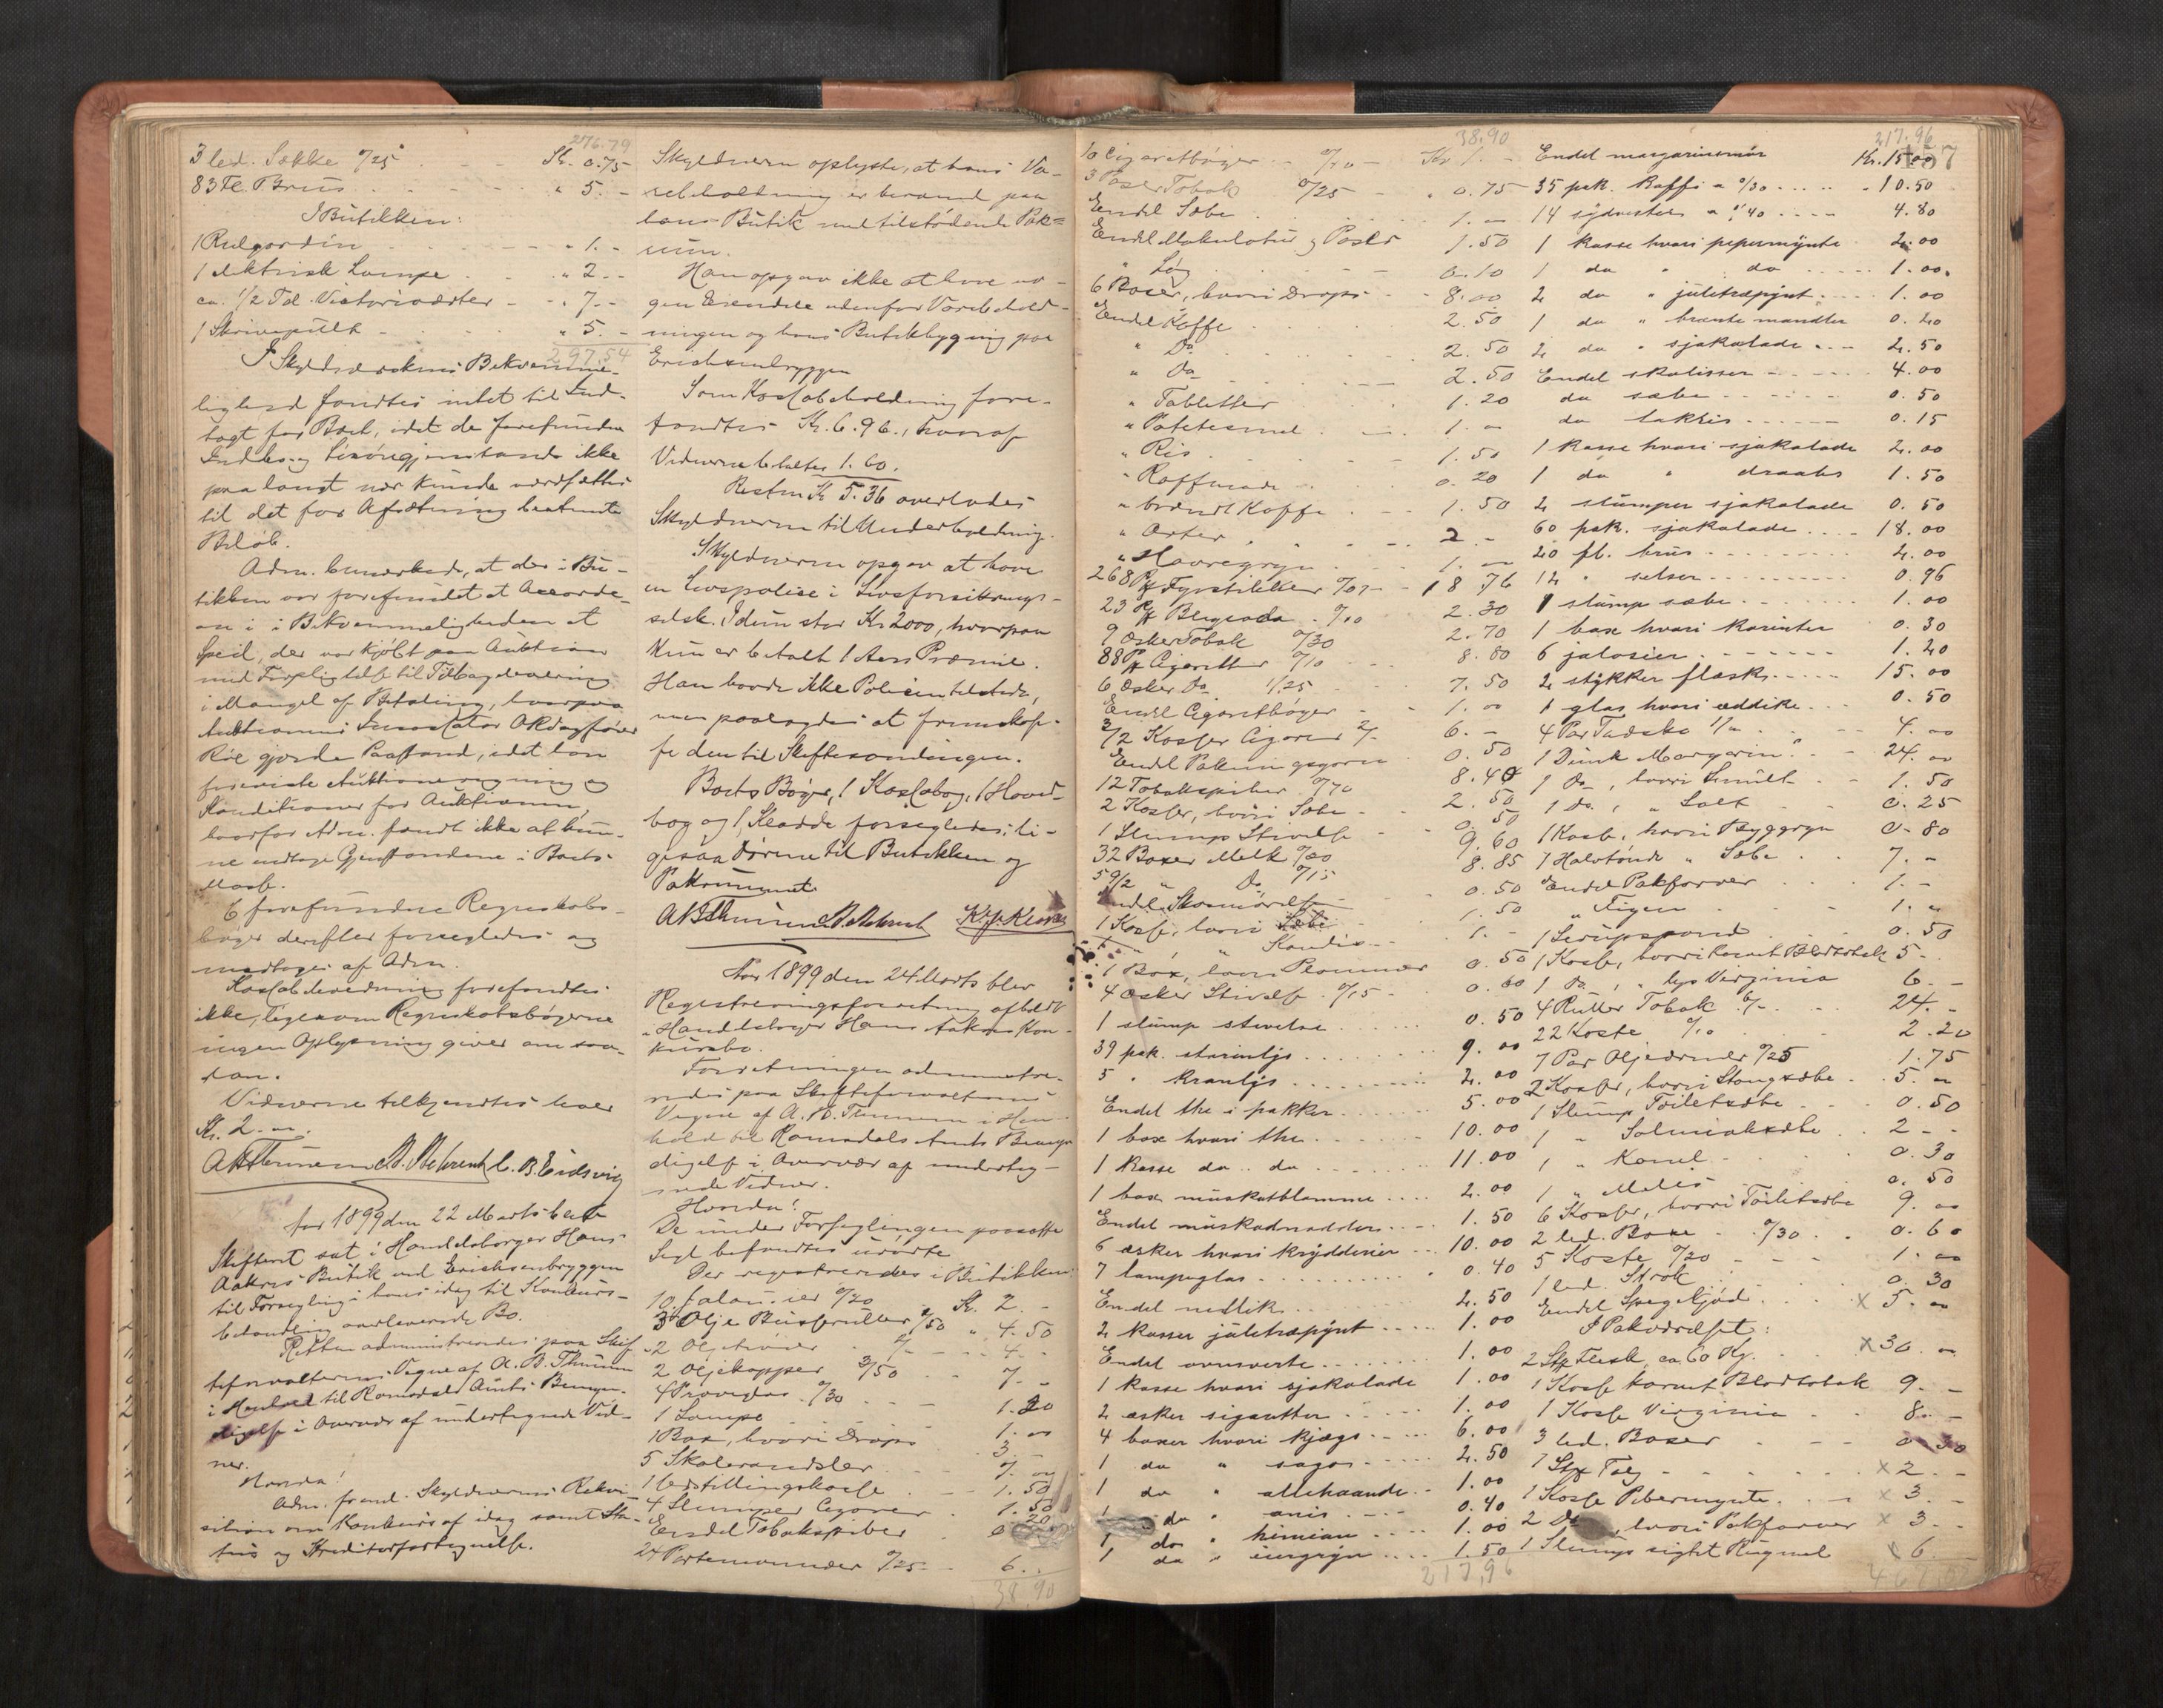 276.79
3 led. Sække 0/25 Kr. 0.75
83 Fl. Brus " 5.-
I Butikken:
1 Rulgardin " 1.-
1 elektrisk Lampe " 2.-
ca. 1/2 Td. Victoriaærter " 7.-
1 Skrivepult " 5.-
297.54
I Skyldnerskens Bekvemme-
lighed fandtes intet til Ind-
tagt for Boet, idet de forefundne
Indbo- og Løsøregjenstande ikke
paa langt nær kunde værdsættes
til det for Afsætning bestemte
Beløb.
Adm. bemærkede, at der i Bu-
tikken var forefundet et
i Bekvemmeligheden et
Speil, der var kjøbt paa Auktion
med Forpligtelse til Tilbagelevering
i Mangel af Betaling, hvorpaa
Auktionens Inkassator O.R.Sagfører
Roe gjorde Paastand, idet han
foreviste Auktionsregning og
Konditioner for Auktionen,
hvorfor Adm. fandt ikke at kun-
ne medtage Gjenstandene i Boets
Masse.
6 forefundne Regnskabs-
bøger derefter forsegledes og
medtoges af Adm.
Kassabeholdning forefandtes
ikke, ligesom Regnskabsbøgerne
ingen Oplysning giver om saa-
dan.
Vidnerne tilkjendtes hver
Kr. 2.-
A B Thunem A. Behrent C. B. Eidsvig
Aar 1899 den 22 Marts blev
Skifteret sat i Handelsborger Hans
Aakres Butik ved Erichsenbryggen
til Forsegling i hans idag til Konkurs-
behandling overleverede Bo.
Retten administreredes paa Skif-
teforvalterens Vegne af A. B. Thunem
i Henhold til Romsdals Amts Bemyn-
digelse i Overvær af undertegnede Vid-
ner.
Hvorda!
Adm. freml. Skyldnerens Rekvi-
sition om Konkurs af idag samt Sta-
tus og Kreditorfortegnelse.
Skyldneren oplyste, at hans Va-
rebeholdning er beroende paa
hans Butik med tilstødende Pak-
rum.
Han opgav ikke at have no-
gen Eiendele udenfor Varebehold-
ningen og hans Butikbygning paa
Erichsenbryggen
Som Kassabeholdning fore-
fandtes Kr. 6.96, hvoraf
Vidnerne betaltes 1.60.
Resten Kr 5.36 overlodes
Skyldneren til Underholdning.
Skyldneren opgav at have
en Livspolice i Livsforsikrings-
selsk. Idun stor Kr 2000, hvorpaa
kun er betalt 1 Aars Præmie.
Han havde ikke Policen tilstede,
men paalagdes at fremskaf-
fe den til Skiftesamlingen.
Boets Bøger, 1 Kassabog, 1 Hoved-
bog og 1 Kladde forsegledes; li-
gesaa Dørene til Butikken og
Pakrummet.
A B Thunem A. Behrent
Aar 1899 den 24 Marts blev
Registreringsforretning afholdt
i Handelsborger Hans Aakres Kon-
kursbo.
Forretningen administre-
redes paa Skifteforvalterens
Vegne af A. B. Thunem i Hen-
hold til Romsdals Amts Bemyn-
digelse i Overvær af underteg-
nede Vidner.
Hvorda!
De under Forseglingen paasatte
Segl befandtes urørte
Der registreredes i Butikken:
10 Jalousier 0/20 Kr. 2.-
3 Olje Buserulter 1/50 " 4.50
2 Oljetrøier 2/- 4.-
2 Oljekapper 3/50 7.-
4 0/30 1.20
1 Lampe 1.00
1 Box, hvori Drops 3.-
5 Skolerandsler 7.00
1 Udstillingskasse 1.50
4 Slumper Cigarer 1.50
Endel Tobakspiber
24 Portemonnæer 0/25 6.-
38.90
38.90
10 Cigaretbøger 0/10 Kr. 1.-
3 Poser Tobak 0/25 " 0.75
Endel Sæbe 1.-
Endel Makulatur og Poser 1.50
" Løg 0.10
6 Boxer, hvori Drops 8.00
Endel Kaffe 2.50
" Do 2.50
" Do 2.50
" Tabletter 1.20
" Potetesmel 1.-
" Ris 1.50
" Raffinade 0.20
" brændt Kaffe 1.50
" Erter 2.-
" Havregryn 1.-
268 Pk Fyrstikker 0/07 18.76
23 Pk Blegsoda 0/10 2.30
9 Æsker Tobak 0/30 2.70
88 Pk Cigaretter 0/10 8.80
6 Æsker Do 1/25 7.50
Endel Cigaretbøger 1.00
3/2 Kasser Cigarer 2/- 6.-
Endel Pakningsgarn 0.50
12 Tobakspiber 0/70 8.40
2 Kasser, hvori Sæbe 2.50
1 Slump Stivelse 0.50
32 Boxer Melk 0/30 9.60
59/2 " Do 0/15 8.85
Endel Skosmørelse 0.50
1 Kasse, hvori Sæbe 1.50
" " Kandis 1.-
1 Box, hvori Plommer 0.50
4 Æsker Stivelse 0/15 0.60
1 slump stivelse 0.50
39 pak. stearinlys 9.00
5 " kronlys 2.00
Endel the i pakker 5.00
1 box hvori the 10.00
1 kasse do do 11.00
1 box muskatblomme 2.00
Endel muskadnødder 1.50
6 æsker hvori krydderier 10.00
7 lampeglas 0.40
Endel nedliks 2.50
2 kasser juletrepynt 1.00
Endel ovnsverte 1.00
1 kasse hvori sjokolade 1.00
2 æsker sigaretter 1.00
4 boxer hvori kjægs 6.00
1 do " sagos 2.50
1 do " allehaande 1.00
1 do " anis 0.40
1 do " kimian 1.00
1 do " 1.50
217,96
217.96
157
Endel margarinsmør Kr. 15.00
35 pak. kaffi a 0/30 " 10.50
14 sydvester a 0/40 4.80
1 kasse hvori pepermynte 2.00
1 do " do 1.00
2 do " juletræpynt 1.00
1 do " brente mandler 0.20
2 do " sjokolade 2.50
Endel skolisser 4.00
do sæbe 0.50
do lakris 0.15
1 kasse hvori sjokolade 2.00
1 do " draabs 1.50
2 stumper sjokolade 0.50
60 pak. sjokolade 18.00
20 fl. brus 2.00
12 " selser 0.96
1 stump sæbe 1.00
1 box hvori korinter 0.30
6 jalosier 1.20
2 stykker flæsk 15.00
1 glas hvori eddike 0.50
4 Par Træsko 1/- 4.00
1 Dunk Margarin 24.00
1 Do, hvori Smult 1.50
1 Do, " Salt 0.25
1 Kasse, hvori Byggryn 0.80
1 Halvtønde " Sæbe 7.-
Endel Pakfarver 1.-
" Figen 1.-
1 Sirupspand 0.50
1 Kasse, hvori karvet Bladtobak 5.-
1 Do, " lys Virginia 6.-
4 Ruller Tobak 6/- 24.-
22 Koste 0/10 2.20
7 Par Oljeærmer 0/25 1.75
2 Kasser, hvori Stangsæbe 5.00
1 Slump Toiletsæbe 0.50
1 " Salmiaksæbe 2.-
1 " Kanel 0.30
1 " Melis 0.50
6 Kasser, hvori Toiletsæbe 9.00
2 led. Boxe 0/30 0.60
5 Koste 0/20 1.00
1 led. 0.30
Endel Spegekjød x 5.00
I Pakværelset:
2 Stk Flesk, ca. 60 Kg. x 30.00
1 Kasse karvet Bladtobak 9.-
1 Kasse Virginia 8.-
3 led. Boxer 0.30
1 Stk Talg x 2.-
1 Kasse Pebermynte x 3.-
2 Do, hvori Pakfarver x 3.-
1 Slump sigtet Rugmel x 6.-